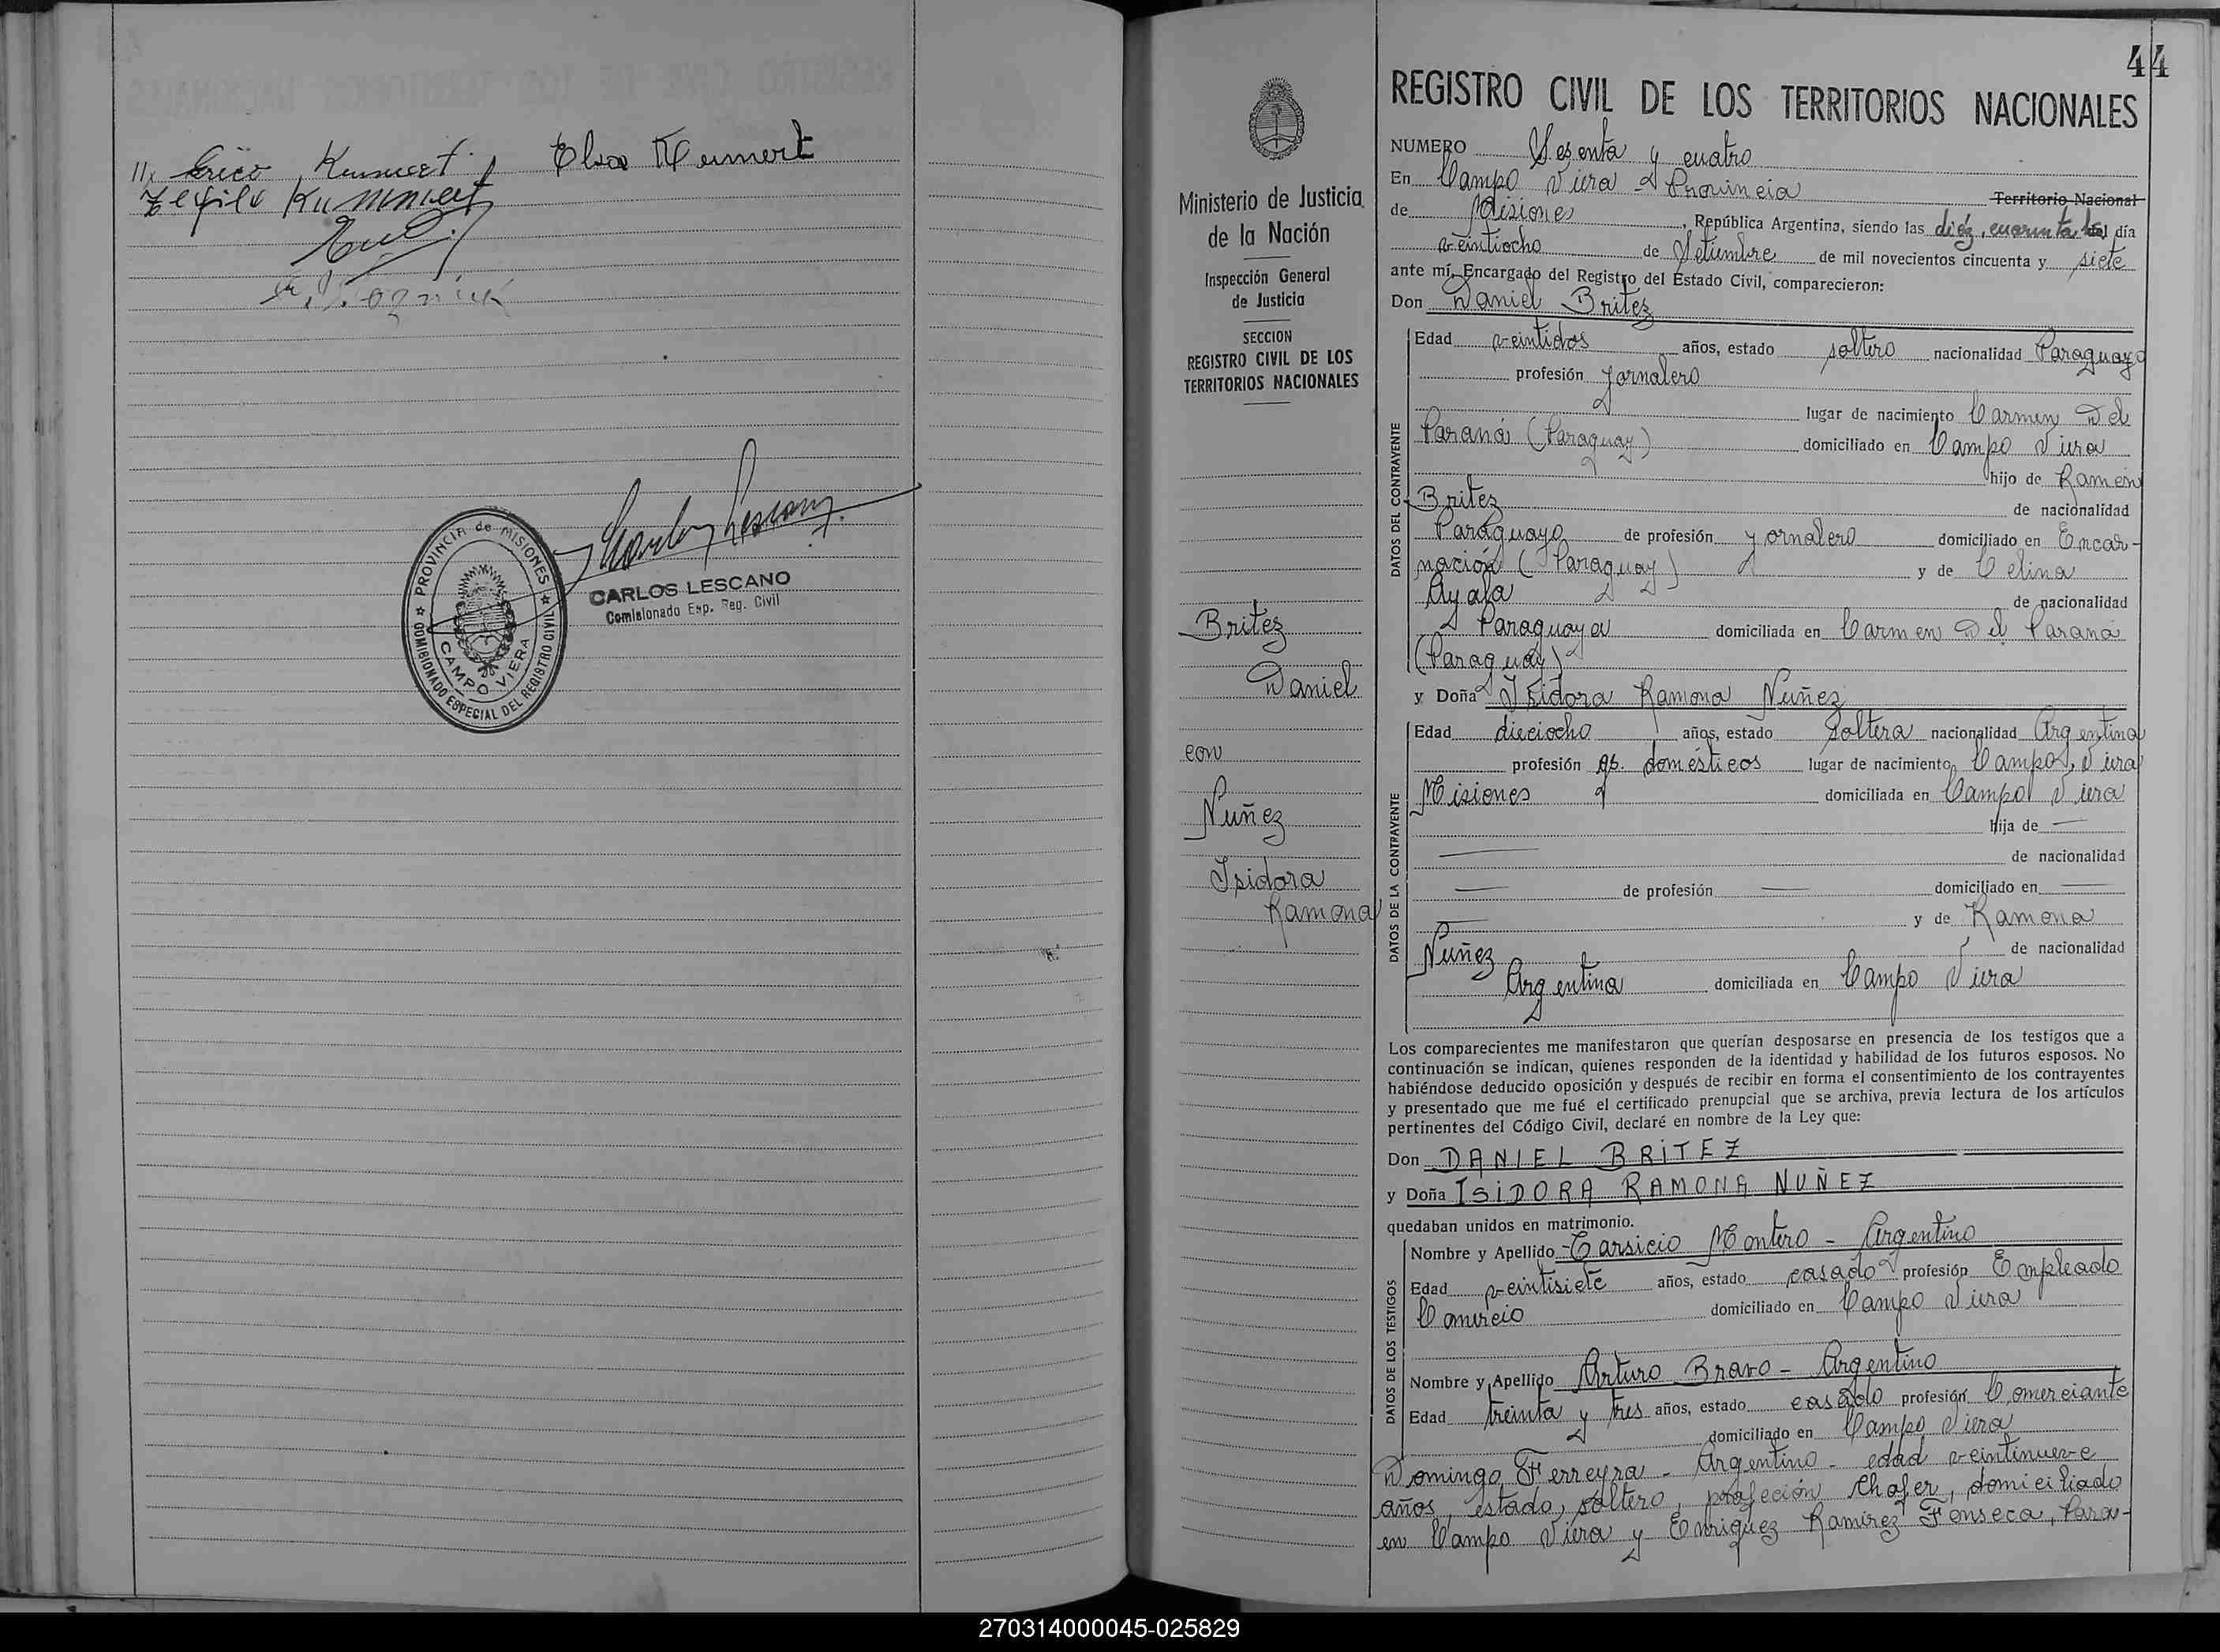 Erico Kummert Elsa Kummert
Zefilo Kummert
PROVINCIA de MISIONES
COMISIONADO ESPECIAL DEL REGISTRO CIVIL
CAMPO VIERA
CARLOS LESCANO
Comisionado Esp. Reg. Civil
Ministerio de Justicia
de la Nación
Inspección General
de Justicia
SECCION
REGISTRO CIVIL DE LOS
TERRITORIOS NACIONALES
Britez
Daniel
con
Nuñez
Isidora
Ramona
44
REGISTRO CIVIL DE LOS TERRITORIOS NACIONALES
NUMERO Sesenta y cuatro
En Campo Viera - Provincia Territorio Nacional
de Misiones, República Argentina, siendo las diéz, cuarenta del día
veintiocho de Setiembre de mil novecientos cincuenta y siete
ante mí, Encargado del Registro del Estado Civil, comparecieron:
Don Daniel Britez
DATOS DEL CONTRAYENTE
Edad veintidos años, estado soltero nacionalidad Paraguayo
profesión Jornalero
lugar de nacimiento Carmen Del
Paraná (Paraguay) domiciliado en Campo Viera
hijo de Ramón
Britez de nacionalidad
Paraguayo de profesión Jornalero domiciliado en Encar-
nación (Paraguay) y de Celina
Ayala de nacionalidad
Paraguaya domiciliada en Carmen Del Paraná
(Paraguay)
y Doña Isidora Ramona Nuñez
DATOS DE LA CONTRAYENTE
Edad dieciocho años, estado soltera nacionalidad Argentina
profesión qh. domésticos lugar de nacimiento Campo Viera
Misiones domiciliada en Campo Viera
hija de —
— de nacionalidad
— de profesión — domiciliado en —
— y de Ramona
Nuñez de nacionalidad
Argentina domiciliada en Campo Viera
Los comparecientes me manifestaron que querían desposarse en presencia de los testigos que a
continuación se indican, quienes responden de la identidad y habilidad de los futuros esposos. No
habiéndose deducido oposición y después de recibir en forma el consentimiento de los contrayentes
y presentado que me fué el certificado prenupcial que se archiva, previa lectura de los artículos
pertinentes del Código Civil, declaré en nombre de la Ley que:
Don DANIEL BRITEZ
y Doña ISIDORA RAMONA NUÑEZ
quedaban unidos en matrimonio.
DATOS DE LOS TESTIGOS
Nombre y Apellido Tarsicio Montero - Argentino
Edad veintisiete años, estado casado profesión Empleado
Comercio domiciliado en Campo Viera
Nombre y Apellido Arturo Bravo - Argentino
Edad treinta y tres años, estado casado profesión Comerciante
domiciliado en Campo Viera
Domingo Ferreyra - Argentino - edad veintinueve
años, estado, soltero, profeción Chofer, domiciliado
en Campo Viera y Enriquez Ramirez Fonseca, Para-
270314000045-025829